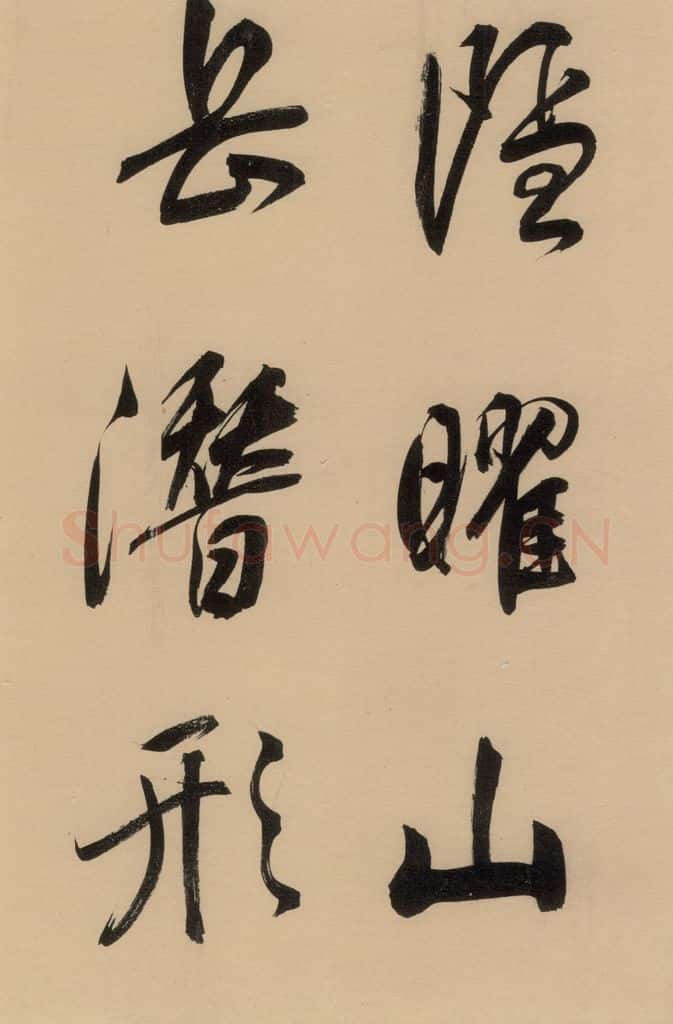 隱曜山
岳潜形
Shufawang.CN